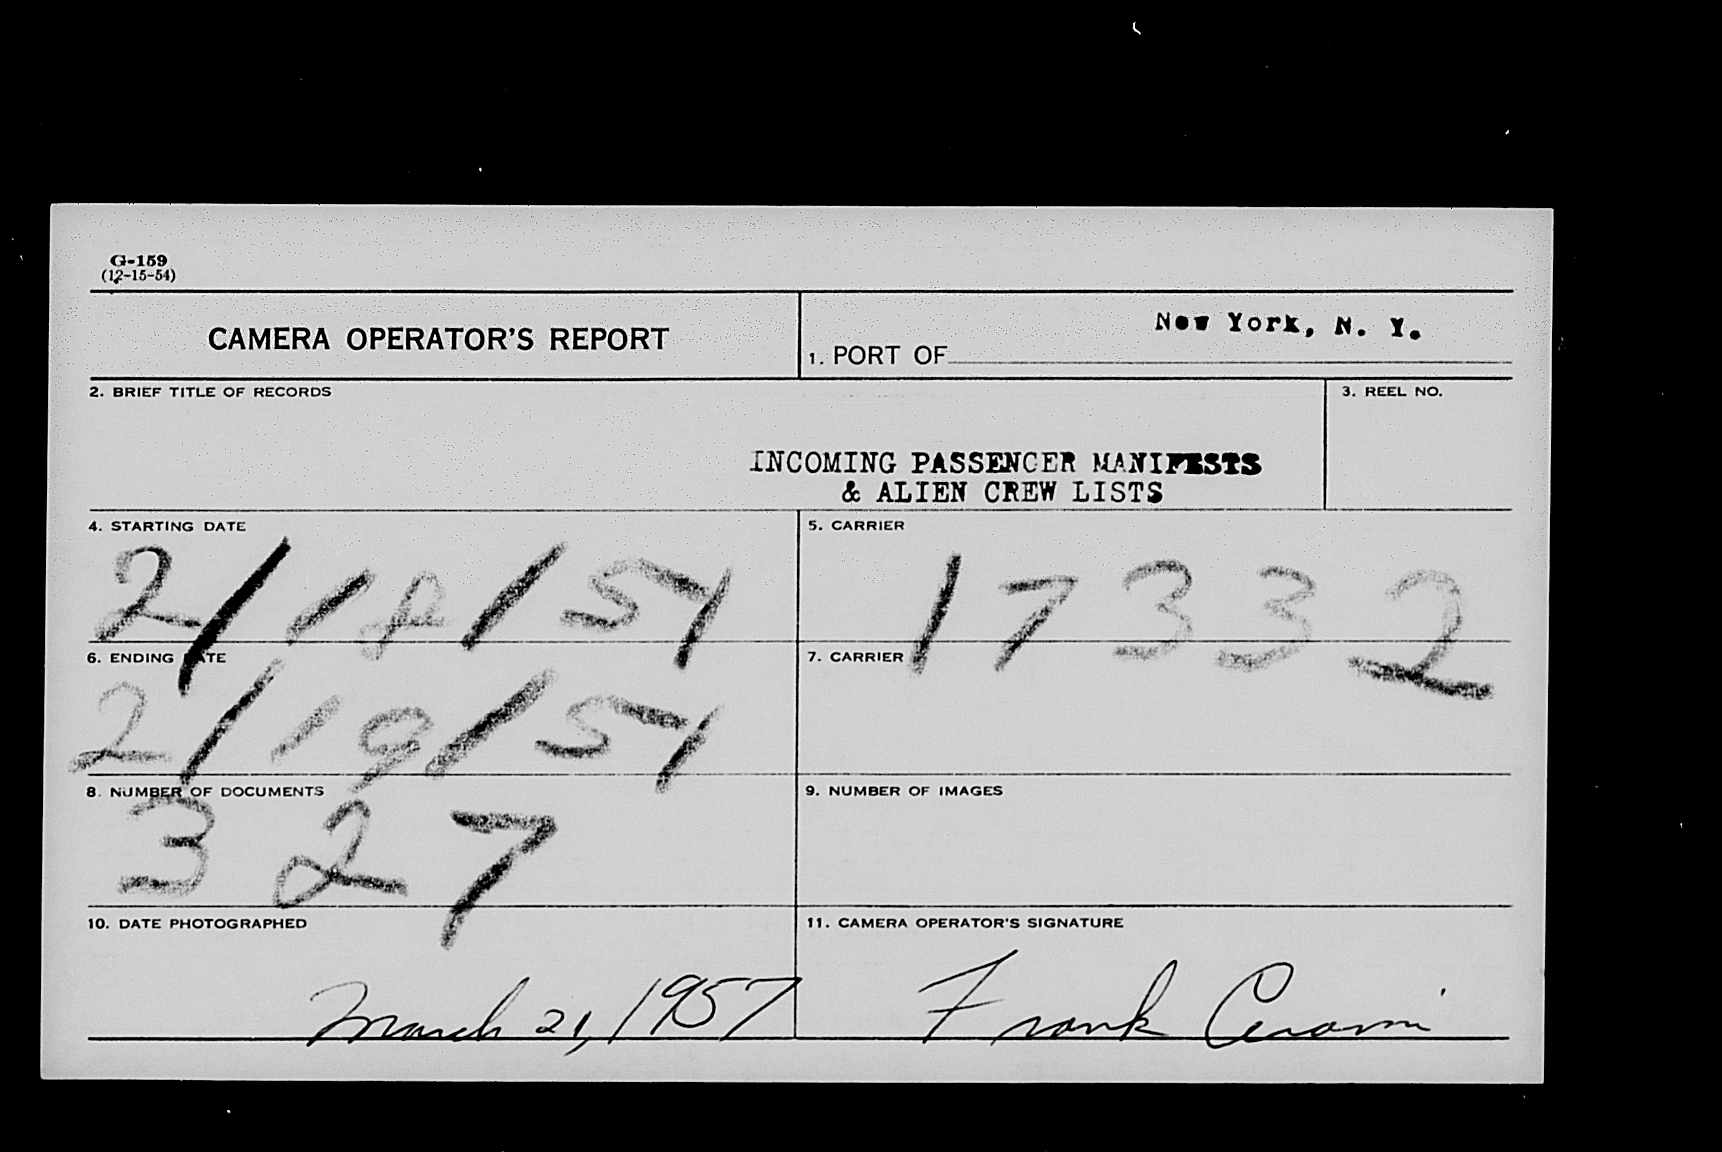 G-159
(12-15-54)
CAMERA OPERATOR'S REPORT
1. PORT OF New York, N. Y.
2. BRIEF TITLE OF RECORDS
3. REEL NO.
INCOMING PASSENGER MANIFESTS
& ALIEN CREW LISTS
4. STARTING DATE
2/18/51
5. CARRIER
17332
6. ENDING DATE
2/19/51
7. CARRIER
8. NUMBER OF DOCUMENTS
327
9. NUMBER OF IMAGES
10. DATE PHOTOGRAPHED
March 21, 1957
11. CAMERA OPERATOR'S SIGNATURE
Frank Cerami